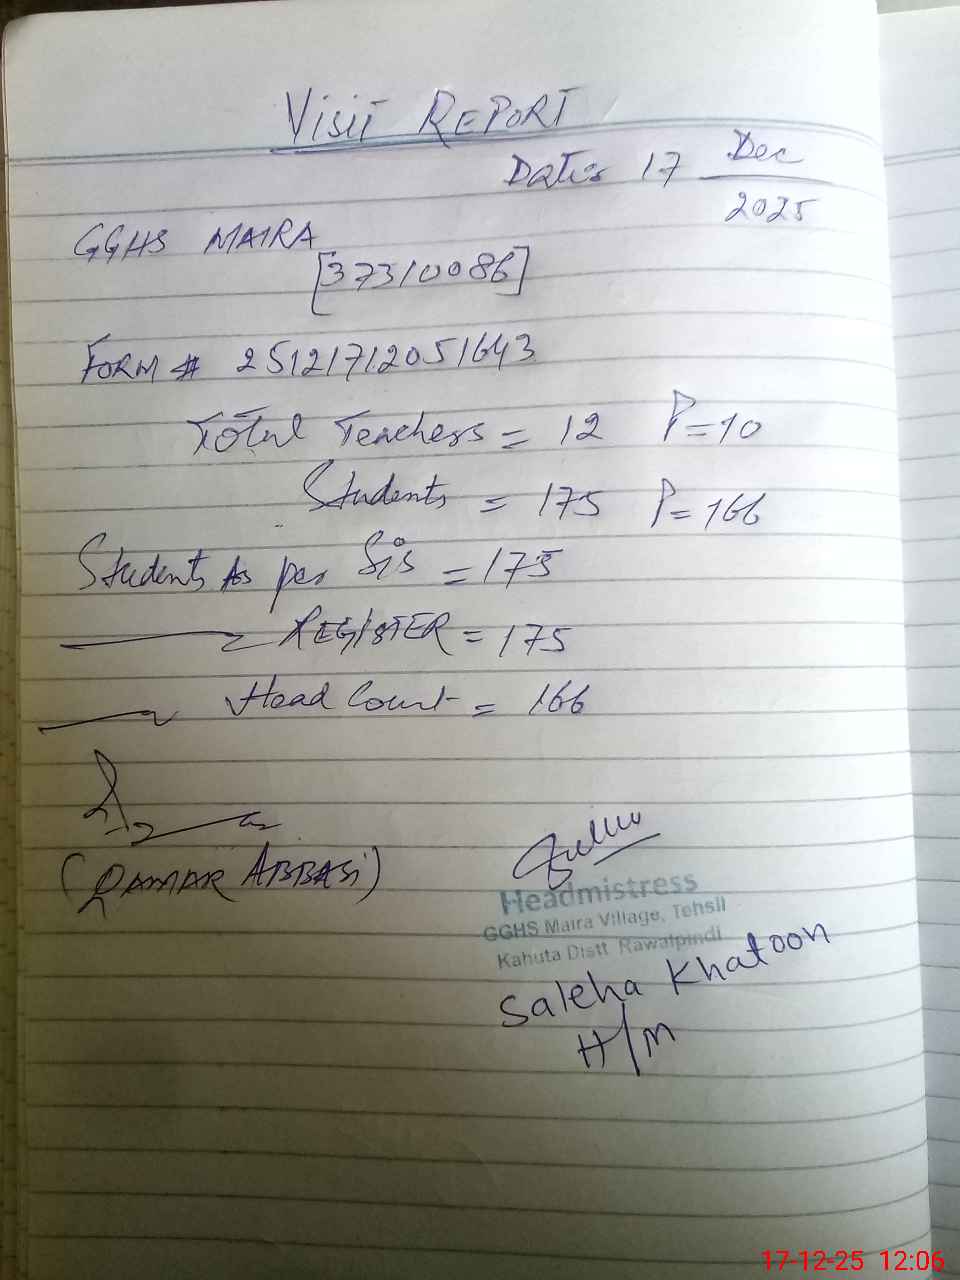 VISIT REPORT
Date: 17 Dec
2025
GGHS MAIRA
[37310086]
FORM # 25121712051643
Total Teachers = 12 P=10
Students = 175 P=166
Students As per Sis = 175
REGISTER = 175
Head Count = 166
(QAMAR ABBASi)
Headmistress
GGHS Maira Village, Tehsil
Kahuta Distt Rawalpindi
Saleha Khatoon
H/M
17-12-25 12:06